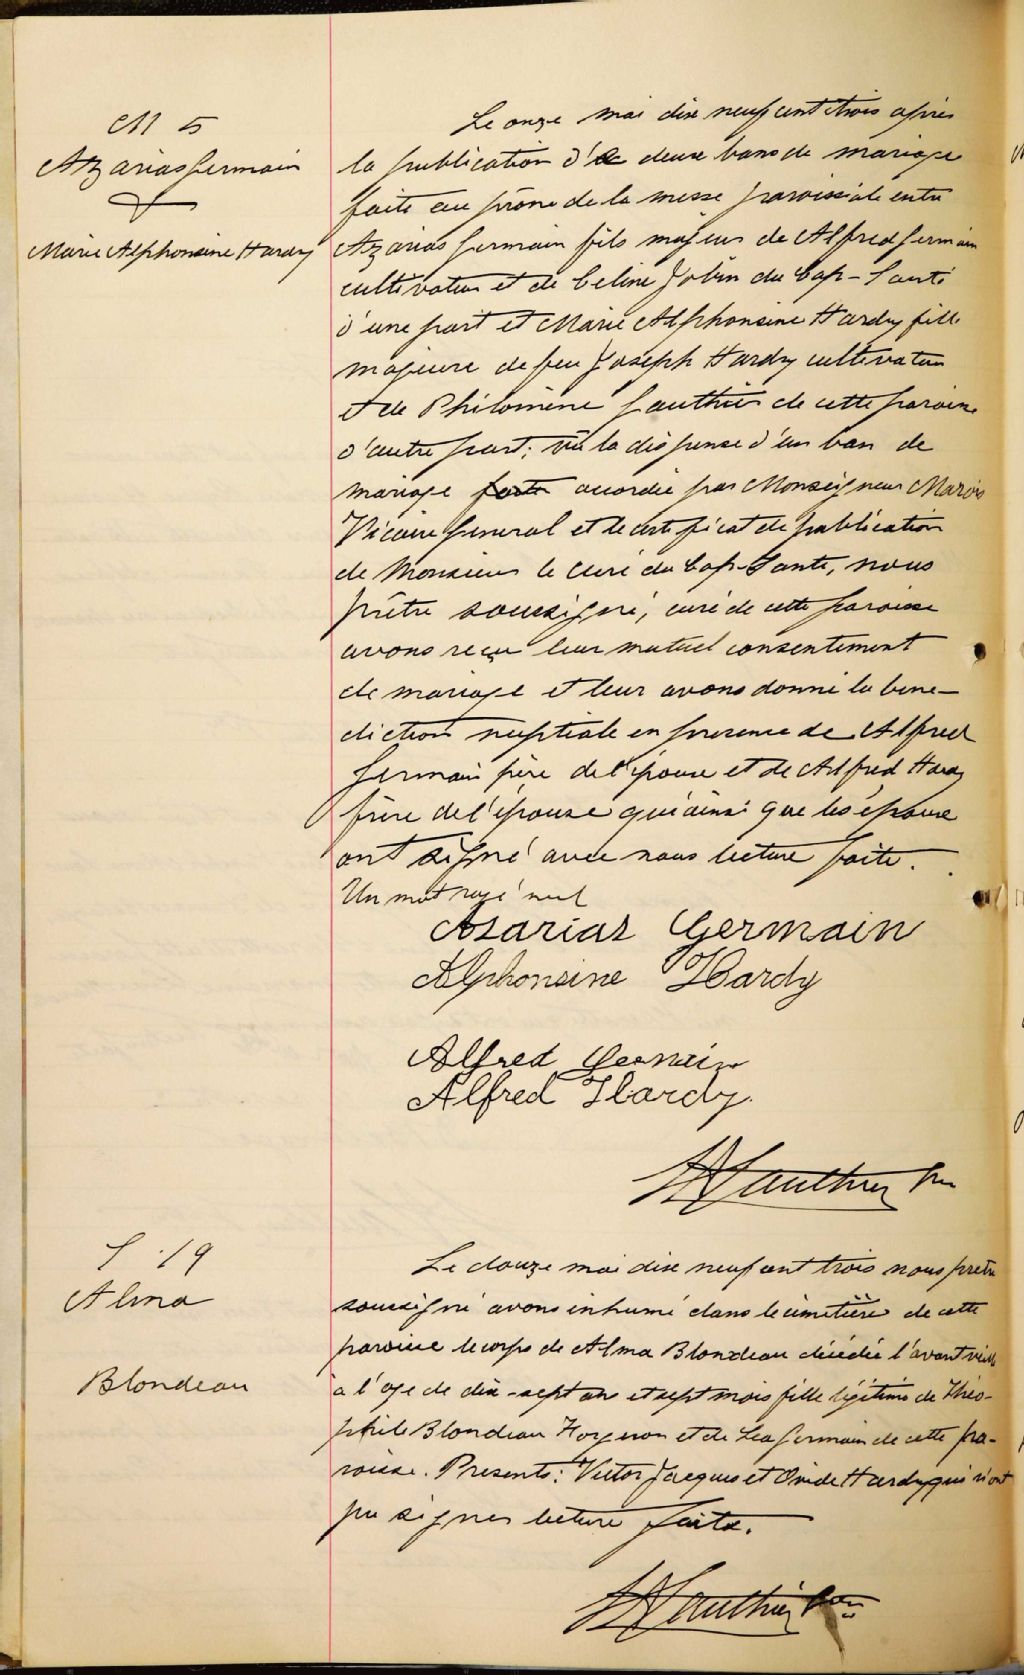 M 5
Azarias Germain
&
Marie Alphonsine Hardy
Le onze mai dix neuf cent trois après
la publication d' deux bans de mariage
faite au prône de la messe paroissiale entre
Azarias Germain fils majeur de Alfred Germain
cultivateur et de Celine Jobin du Cap-Santé
d'une part et Marie Alphonsine Hardy fille
majeure de feu Joseph Hardy cultivateur
et de Philomène Gauthier de cette paroisse
d'autre part; vu la dispense d'un ban de
mariage accordée par Monseigneur Marois
Vicaire General et le certificat de publication
de Monsieur le curé du Cap-Santé, nous
prêtre soussigné, curé de cette paroisse
avons reçu leur mutuel consentement
de mariage et leur avons donné la bene-
diction nuptiale en presence de Alfred
Germain père de l'époux et de Alfred Hardy
frère de l'épouse qui ainsi que les époux
ont signé avec nous lecture faite.
Un mot rayé nul
Azarias Germain
Alphonsine Hardy
Alfred Germain
Alfred Hardy.
Gauthier Ptre
S. 19
Alma
Blondeau
Le douze mai dix neuf cent trois nous prêtre
soussigné avons inhumé dans le cimetière de cette
paroisse le corps de Alma Blondeau décédée l'avant veille
a l'age de dix-sept ans et sept mois fille légitime de Théo-
phile Blondeau Forgeron et de Lea Germain de cette pa-
roisse. Presents: Victor Jacques et Ovide Hardy qui n'ont
pu signer lecture faite.
Gauthier Ptre